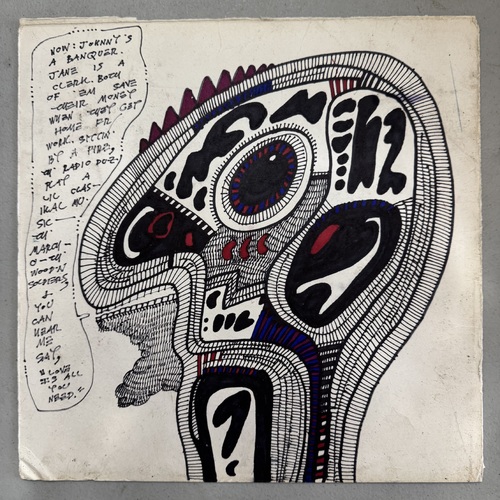 NOW: JOHNNY'S
A BANQUER.
JANE IS A
CLERK. BOTH
OF 'EM SAVE
THEIR MONEY
WHEN THEY GET
HOME FR.
WORK. SITTIN'
BY A FIRE,
RADIO DOZ,
PLAY A
LIC CLAS-
IKAL MU-
SIC
TH
MARCH
O-TH
WOOD'N
SOLDIERS,
&
YOU
CAN
HEAR
ME
SAY,
"LOVE
IS ALL
YOU
NEED."